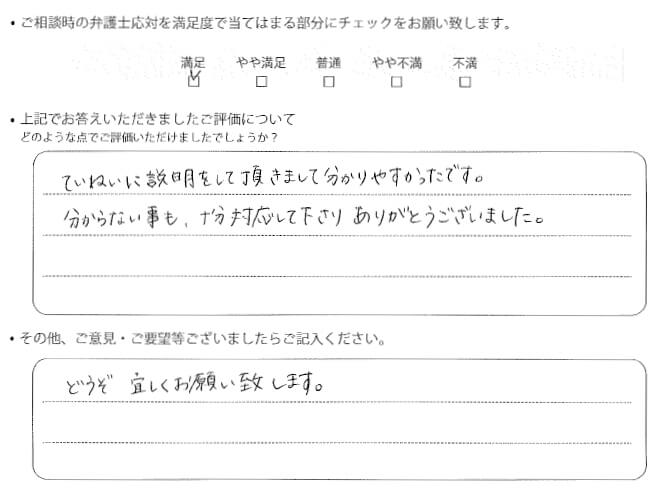 ・ご相談時の弁護士応対を満足度で当てはまる部分にチェックをお願い致します。
満足 やや満足 普通 やや不満 不満
☑ □ □ □ □
・上記でお答えいただきましたご評価について
どのような点でご評価いただけましたでしょうか？
ていねいに説明をして頂きまして分かりやすかったです。
分からない事も、十分対応して下さり ありがとうございました。
・その他、ご意見・ご要望等ございましたらご記入ください。
どうぞ 宜しくお願い致します。